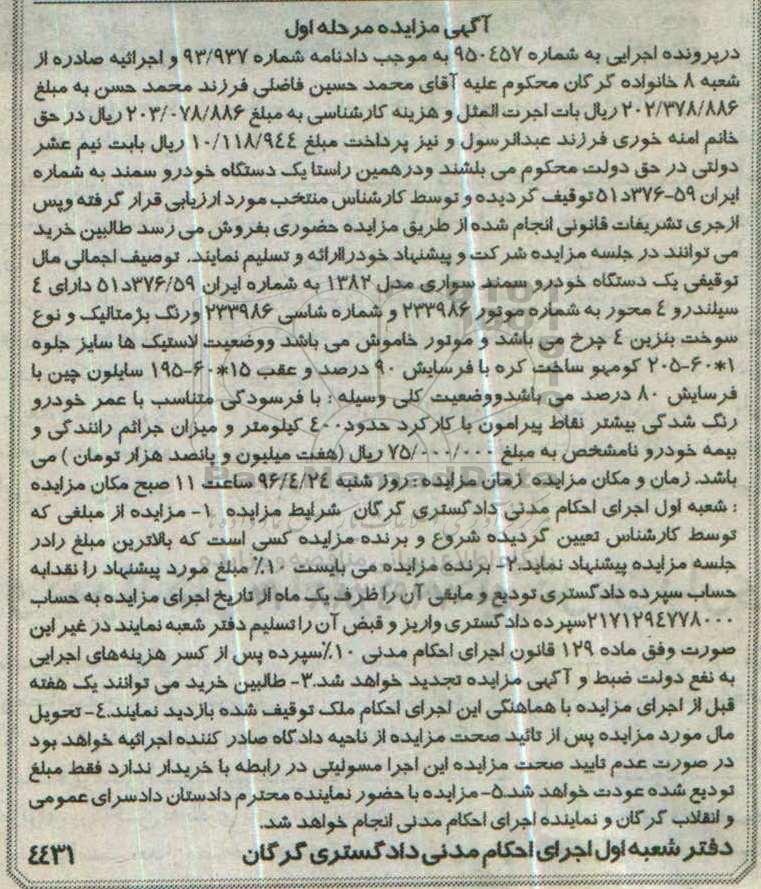 آگهی مزایده مرحله اول
درپرونده اجرایی به شماره ۹۵۰۴۵۷ به موجب دادنامه شماره ۹۳/۹۳۷ و اجرائیه صادره از
شعبه ۸ خانواده گرگان محکوم علیه آقای محمد حسین فاضلی فرزند محمد حسن به مبلغ
۲۰۲/۳۷۸/۸۸۶ ریال بات اجرت المثل و هزینه کارشناسی به مبلغ ۲۰۳/۰۷۸/۸۸۶ ریال در حق
خانم امنه خوری فرزند عبدالرسول و نیز پرداخت مبلغ ۱۰/۱۱۸/۹٤٤ ریال بابت نیم عشر
دولتی در حق دولت محکوم می بلشند ودرهمین راستا یک دستگاه خودرو سمند به شماره
ایران ۵۹-۳۷۶د۵۱ توقیف گردیده و توسط کارشناس منتخب مورد ارزیابی قرار گرفته وپس
ازجری تشریفات قانونی انجام شده از طریق مزایده حضوری بفروش می رسد طالبین خرید
می توانند در جلسه مزایده شرکت و پیشنهاد خودراارائه و تسلیم نمایند. توصیف اجمالی مال
توقیفی یک دستگاه خودرو سمند سواری مدل ۱۳۸۲ به شماره ایران ۳۷۶/۵۹د۵۱ دارای ٤
سیلندرو ٤ محور به شماره موتور ۲۳۳۹۸۶ و شماره شاسی ۲۳۳۹۸۶ ورنگ بژمتالیک و نوع
سوخت بنزین ٤ چرخ می باشد و موتور خاموش می باشد ووضعیت لاستیک ها سایز جلوه
۱*۶۰-۲۰۵ کومهو ساخت کره با فرسایش ۹۰ درصد و عقب ۱۵*۶۰-۱۹۵ سایلون چین با
فرسایش ۸۰ درصد می باشدووضعیت کلی وسیله : با فرسودگی متناسب با عمر خودرو
رنگ شدگی بیشتر نقاط پیرامون با کارکرد حدود٤۰۰ کیلومتر و میزان جرائم رانندگی و
بیمه خودرو نامشخص به مبلغ ۷۵/۰۰۰/۰۰۰ ریال (هفت میلیون و پانصد هزار تومان ) می
باشد. زمان و مکان مزایده زمان مزایده : روز شنبه ۹۶/٤/۲٤ ساعت ۱۱ صبح مکان مزایده
: شعبه اول اجرای احکام مدنی دادگستری گرگان شرایط مزایده ۱- مزایده از مبلغی که
توسط کارشناس تعیین گردیده شروع و برنده مزایده کسی است که بالاترین مبلغ رادر
جلسه مزایده پیشنهاد نماید.۲- برنده مزایده می بایست ۱۰٪ مبلغ مورد پیشنهاد را نقدابه
حساب سپرده دادگستری تودیع و مابقی آن را ظرف یک ماه از تاریخ اجرای مزایده به حساب
۲۱۷۱۲۹٤۷۷۸۰۰۰سپرده دادگستری واریز و قبض آن را تسلیم دفتر شعبه نمایند در غیر این
صورت وفق ماده ۱۲۹ قانون اجرای احکام مدنی ۱۰٪سپرده پس از کسر هزینه‌های اجرایی
به نفع دولت ضبط و آگهی مزایده تجدید خواهد شد.۳- طالبین خرید می توانند یک هفته
قبل از اجرای مزایده با هماهنگی این اجرای احکام ملک توقیف شده بازدید نمایند.٤- تحویل
مال مورد مزایده پس از تائید صحت مزایده از ناحیه دادگاه صادر کننده اجرائیه خواهد بود
در صورت عدم تایید صحت مزایده این اجرا مسولیتی در رابطه با خریدار ندارد فقط مبلغ
تودیع شده عودت خواهد شد.۵- مزایده با حضور نماینده محترم دادستان دادسرای عمومی
و انقلاب گرگان و نماینده اجرای احکام مدنی انجام خواهد شد.
دفتر شعبه اول اجرای احکام مدنی دادگستری گرگان ٤٤۳۱